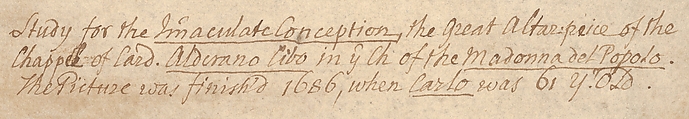 Study for the Im̃aculate Conception, the Great Altar-peice of the
Chappel of Card. Alderano Cibo in ỹ Ch of the Madonna del Popolo.
The Picture was finish'd 1686, when Carlo was 61 Y.ʳ Old.